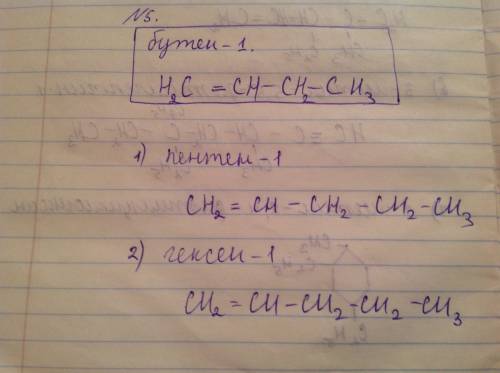 №5.
бутен-1.
H₂C = CH – CH₂ – CH₃
1) пентен-1
CH₂ = CH – CH₂ – CH₂ – CH₃
2) гексен-1
CH₂ = CH – CH₂ – CH₂ – CH₃